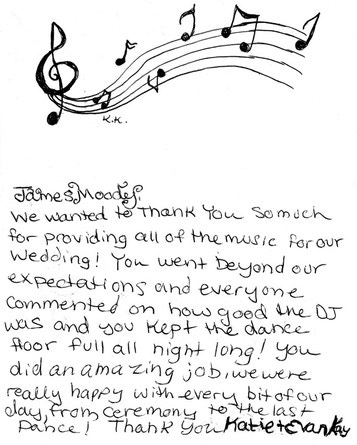 K.K.
James Moody,
We wanted to Thank You so much
for providing all of the music for our
wedding! You went beyond our
expectations and everyone
commented on how good the DJ
was and you kept the dance
floor full all night long! You
did an amazing job, we were
really happy with every bit of our
day, from ceremony to the last
Dance! Thank You Katie + Evan Kay